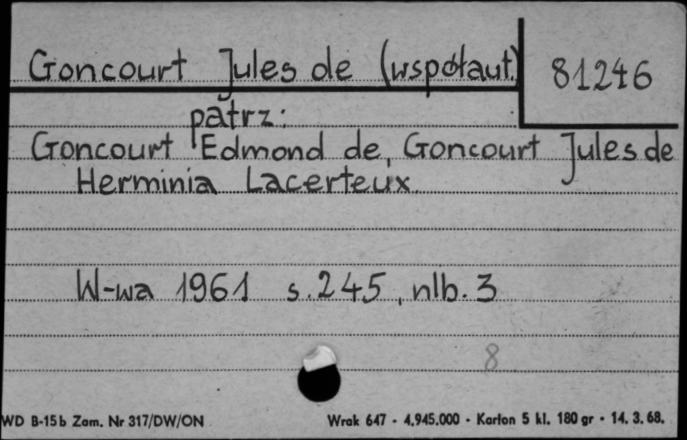 Goncourt Jules de (współaut.)
81246
patrz:
Goncourt Edmond de, Goncourt Jules de
Herminia Lacerteux
W-wa 1961 s. 245, nlb. 3
8
WD B-15b Zam. Nr 317/DW/ON
Wrak 647 - 4.945.000 - Karton 5 kl. 180 gr - 14. 3. 68.